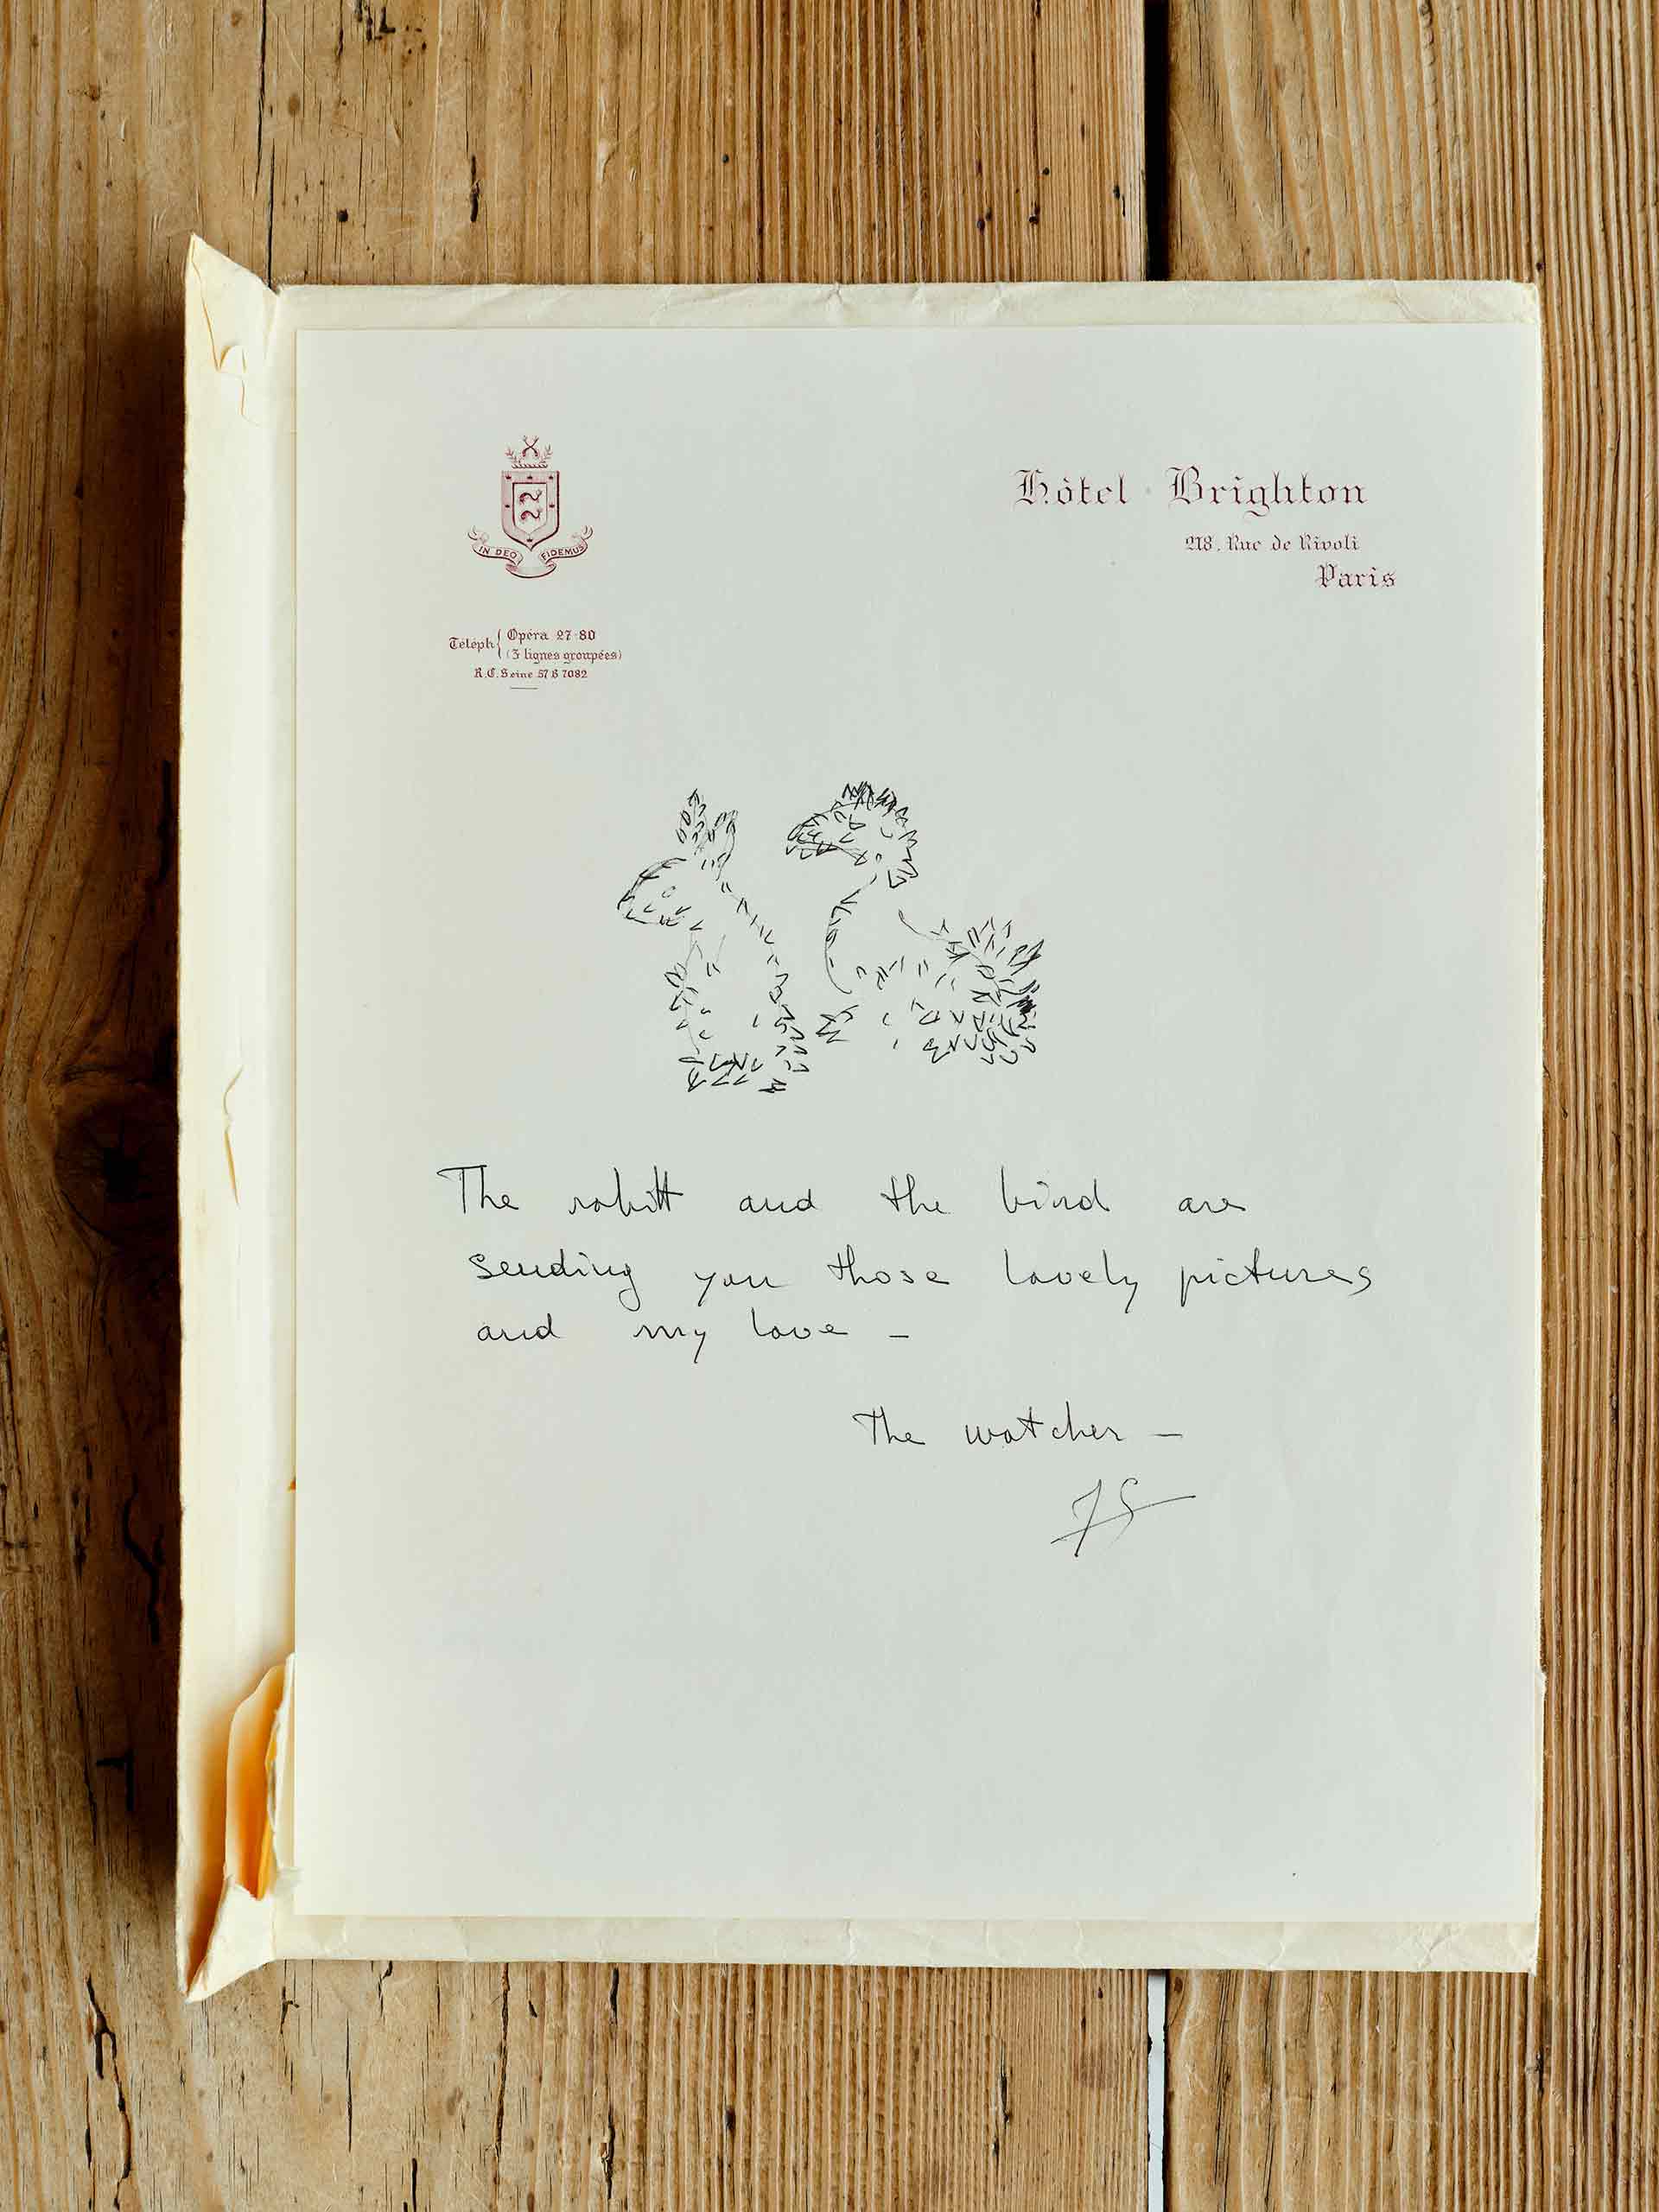 IN DEO FIDEMUS
Hôtel Brighton
218, Rue de Rivoli
Paris
Téléph { Opéra 27-80
(3 lignes groupées)
R.C. Seine 57 B 7082
The rabitt and the bird are
sending you those lovely pictures
and my love –
The watcher –
JS